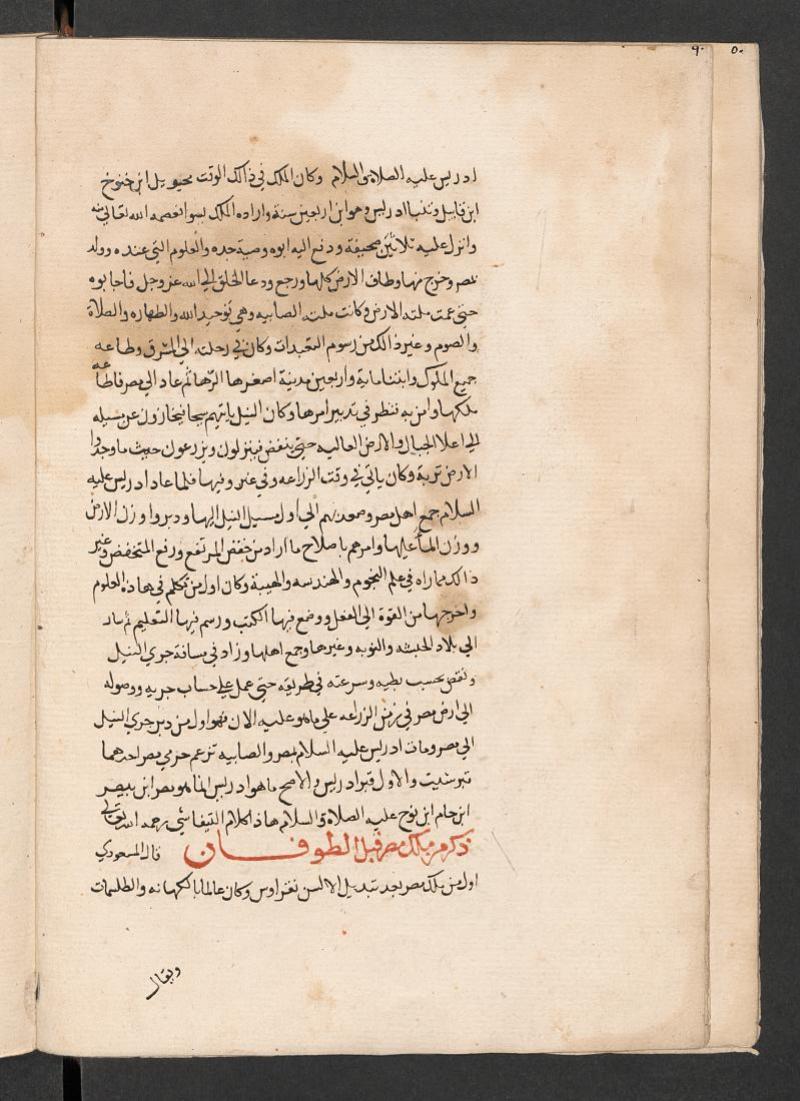 ٩٠ ٥٠
ادريس عليه الصلاة والسلام وكان الملك في ذالك الوقت محويل ابن خنوخ
ابن قابيل وتنبا ادريس وهو ابن اربعين سنة واراده الملك بسوا فعصمه الله تعالى منه
وانزل عليه ثلاثين صحيفة ودفع اليه ابوه وصية جده والعلوم التي عنده وولد
بمصر وخرج منها وطاف الارض كلها ورجع ودعا الخلق الى الله عز وجل فاجابوه
حتى عمت ملته الارض وكانت ملته الصابيه وهي توحيد الله والطهاره والصلاة
والصوم وغير ذالك من رسوم التعبدات وكان في رحلته الى المشرق وطاعه
جميع الملوك وابتنا ماية واربعين مدينة اصغرها الرها ثم عاد الي مصر فاطاعه
ملكها وامن به فنظر في تدبير امرها وكان النيل ياتيهم سيحا فينحازون عن مسيله
الى اعلا الجبال والارض العاليه حتى ينقص فينزلون ويزرعون حيث ما وجدوا
الارض ترية وكان ياتي في وقت الزراعه وفي غير وقتها فلما عاد ادريس عليه
السلام جمع اهل مصر وصعد بهم الي اول مسيل النيل اليها ودبروا وزن الارض
ووزن الما عليها وامرهم باصلاح ما اراد من خفض المرتفع ورفع المنخفض وغير
ذالك مما راه في علم النجوم والهندسه والهيية وكان اول من تكلم في هاذه العلوم
واخرجها من القوة الى الفعل ووضع فيها الكتب ورسم فيها التعليم ثم سار
الي بلاد الحبشه والنوبه وغيرها وجمع اهلها وزاد في مسافة جري النيل
ونقص بحسب بطيه وسرعته في طريقه حتى عمل على حساب جريه ووصوله
الي ارض مصر في زمن الزراعه علي ما هو عليه الان فهو اول من دبر جري النيل
الي مصر ومات ادريس عليه السلام بمصر والصابيه تزعم هرمي مصر احدهما
قبر شيت والاول قبر ادريس والاصح ما هو ادريس انما هو مصر ابن بيصر
ابن حام ابن نوح عليه الصلاة والسلام هاذا كلام التيفاشي رحمه الله تعالى
ذكر من ملك مصر قبل الطوفان قال المسعودي
اول من ملك مصر بعد تبديل الالسن نقراوس وكان عالما بالكهانه والطلسمات
ويقال